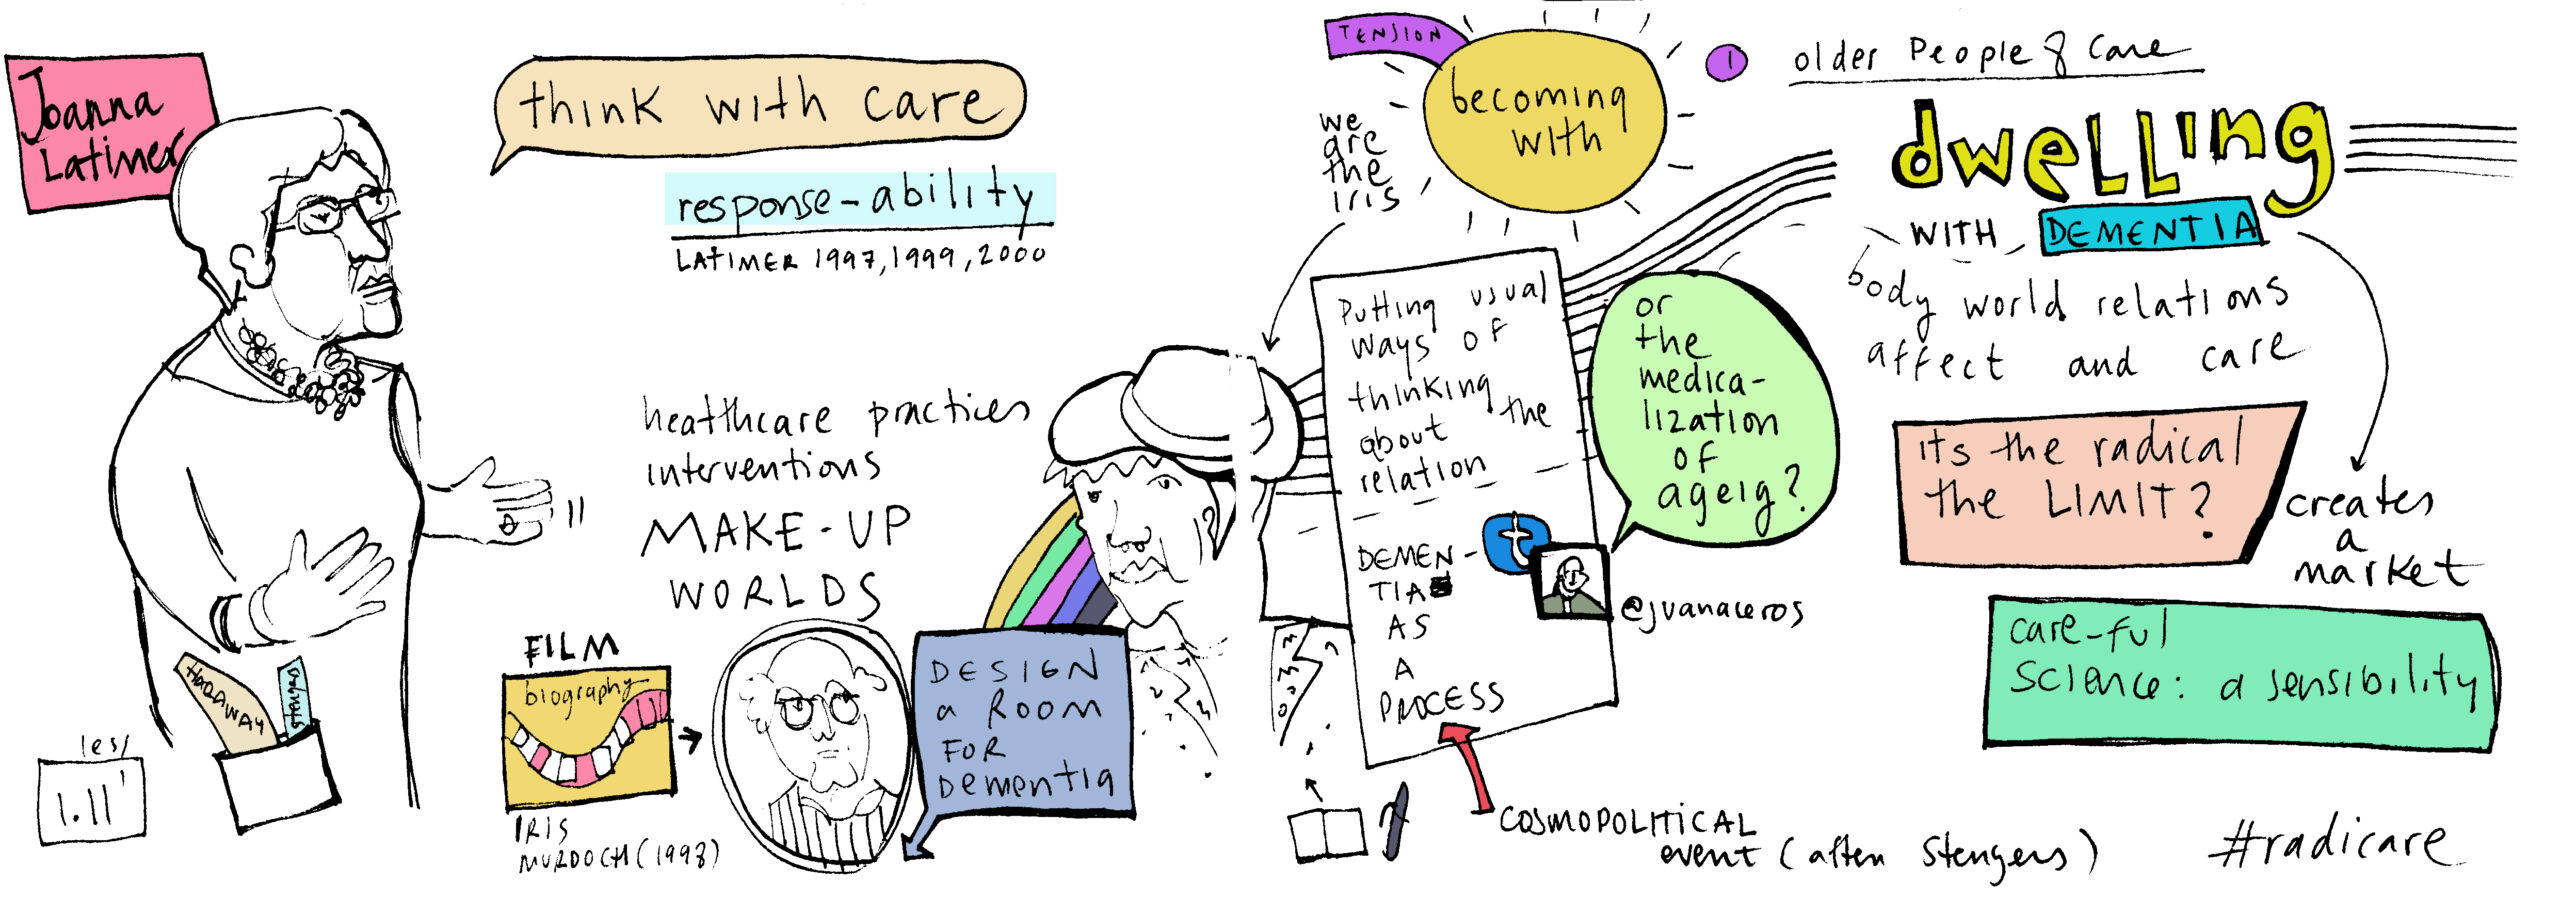 Joanna
Latimer
think with care
response-ability
LATIMER 1997, 1999, 2000
healthcare practices
interventions
MAKE-UP
WORLDS
HARAWAY
stengers
1.11'
FILM
biography
IRIS
MURDOCH (1998)
DESIGN
a ROOM
FOR
Dementia
TENSION
becoming
with
we
are
the
iris
Putting usual
ways of
thinking
about the
relation
DEMEN-
TIA
AS
A
PROCESS
or
the
medica-
lization
of
ageig?
t
@juanaceros
COSMOPOLITICAL
event (after Stengers)
1
older People & Care
dwelling
WITH DEMENTIA
body world relations
affect and care
its the radical
the LIMIT?
creates
a
market
care-ful
science: a sensibility
#radicare